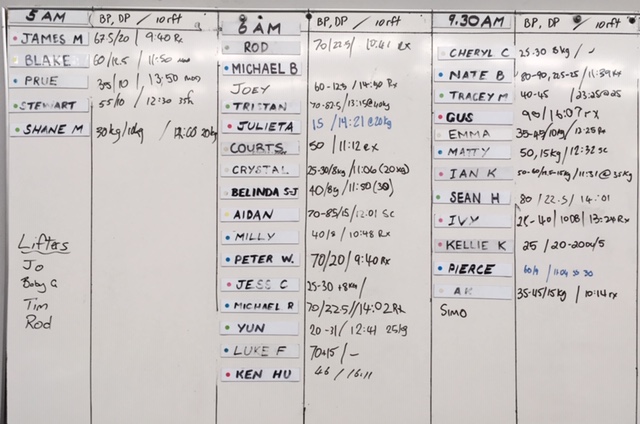 5 AM BP, DP / 10rft
JAMES M 67.5/20 / 9:40 Rx
BLAKE 60/12.5 / 11:50
PRUE 35/10 / 13:50
STEWART 55/10 / 12:30
SHANE M 50kg/10kg / 20kg
Lifters
Jo
Baby G
Tim
Rod
6 AM BP, DP / 10rft
ROD 70/22.5 / 10:41 Rx
MICHAEL B
JOEY 60-12.5 / 14:50 Rx
TRISTAN
JULIETA 15 / 19:21 @20kg
COURTS 50 / 11:12 Rx
CRYSTAL 25-30/8kg / 11:06 (20kg)
BELINDA S-J 40/8g / 11:50 (30)
AIDAN 70-85/15 / 12:01 SC
MILLY 40/8 / 10:48 Rx
PETER W. 70/20 / 9:40 Rx
JESS C 25-30 +8kg /
MICHAEL R 70/22.5 // 14:02 Rx
YUN 20-31 / 12:41 25kg
LUKE F 70+15 / -
KEN HU 46 / 16:11
9.30AM BP, DP / 10rft
CHERYL C 25.30 8kg / -
NATE B 80-90, 22.5-25 / 11:39 Rx
TRACEY M 40-45 / 23:25 @25
GUS 90 / 16:07 rx
EMMA 35-45/10kg / 12:25 Rx
MATTY 50, 15kg / 12:32 SC
IAN K 50-60/12.5-15kg / 11:31 @ 35kg
SEAN H 80 / 22.5 / 14:01
IVY 13:24 Rx
KELLIE K 25 /
PIERCE 60/
AK 35-45/15kg / 10:14 rx
SIMO